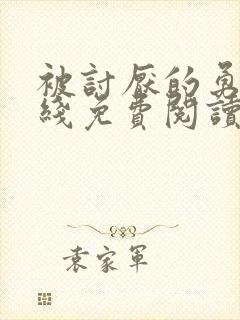 被討厭的勇
綫免費閱讀
袁家軍